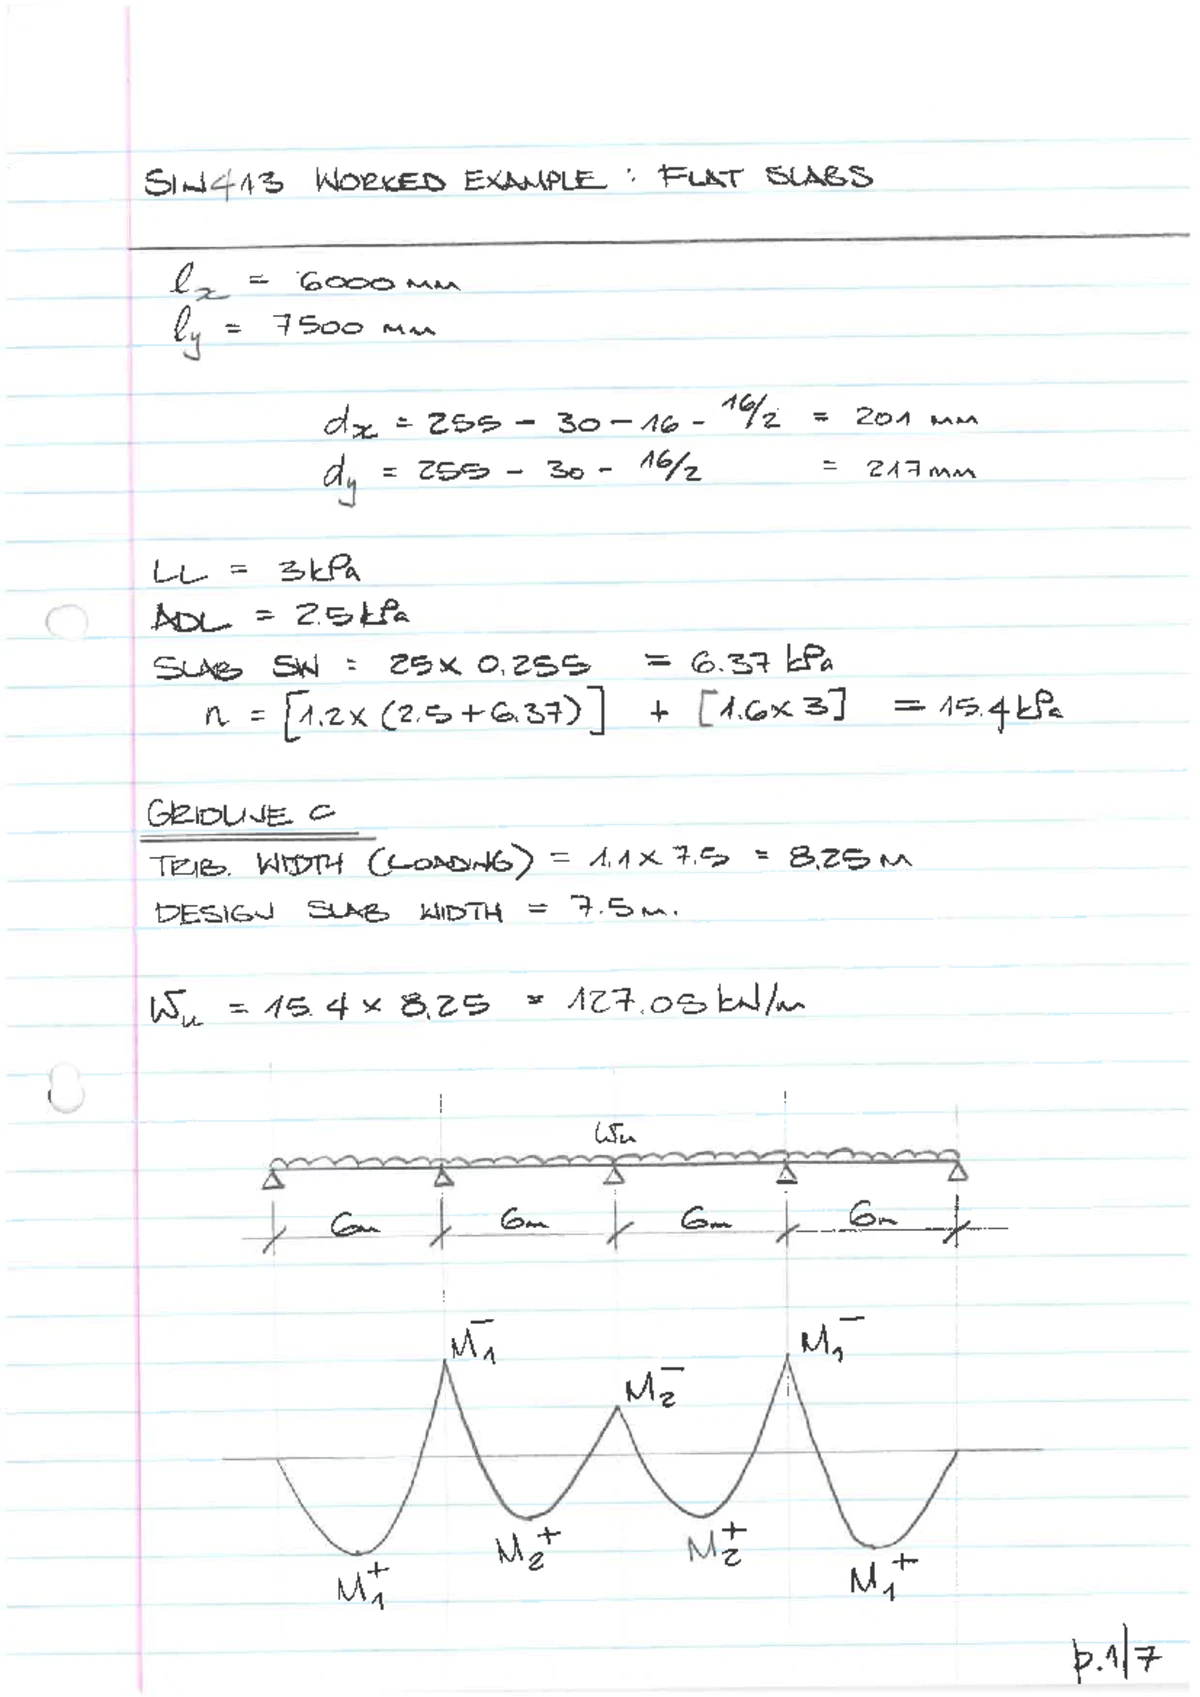 SIN413 WORKED EXAMPLE : FLAT SLABS
lx = 6000 mm
ly = 7500 mm
dx = 255 - 30 - 16 - 16/2 = 201 mm
dy = 255 - 30 - 16/2 = 217 mm
LL = 3 kPa
ADL = 2.5 kPa
SLAB SW = 25 x 0,255 = 6.37 kPa
n = [1.2 x (2.5 + 6.37)] + [1.6 x 3] = 15.4 kPa
GRIDLINE C
TRIB. WIDTH (LOADING) = 1.1 x 7.5 = 8,25 m
DESIGN SLAB WIDTH = 7.5 m.
Wu = 15.4 x 8,25 = 127.05 kN/m
Wu
6m 6m 6m 6m
M1- M1-
M2-
M2+ M2+
M1+ M1+
p.1/7